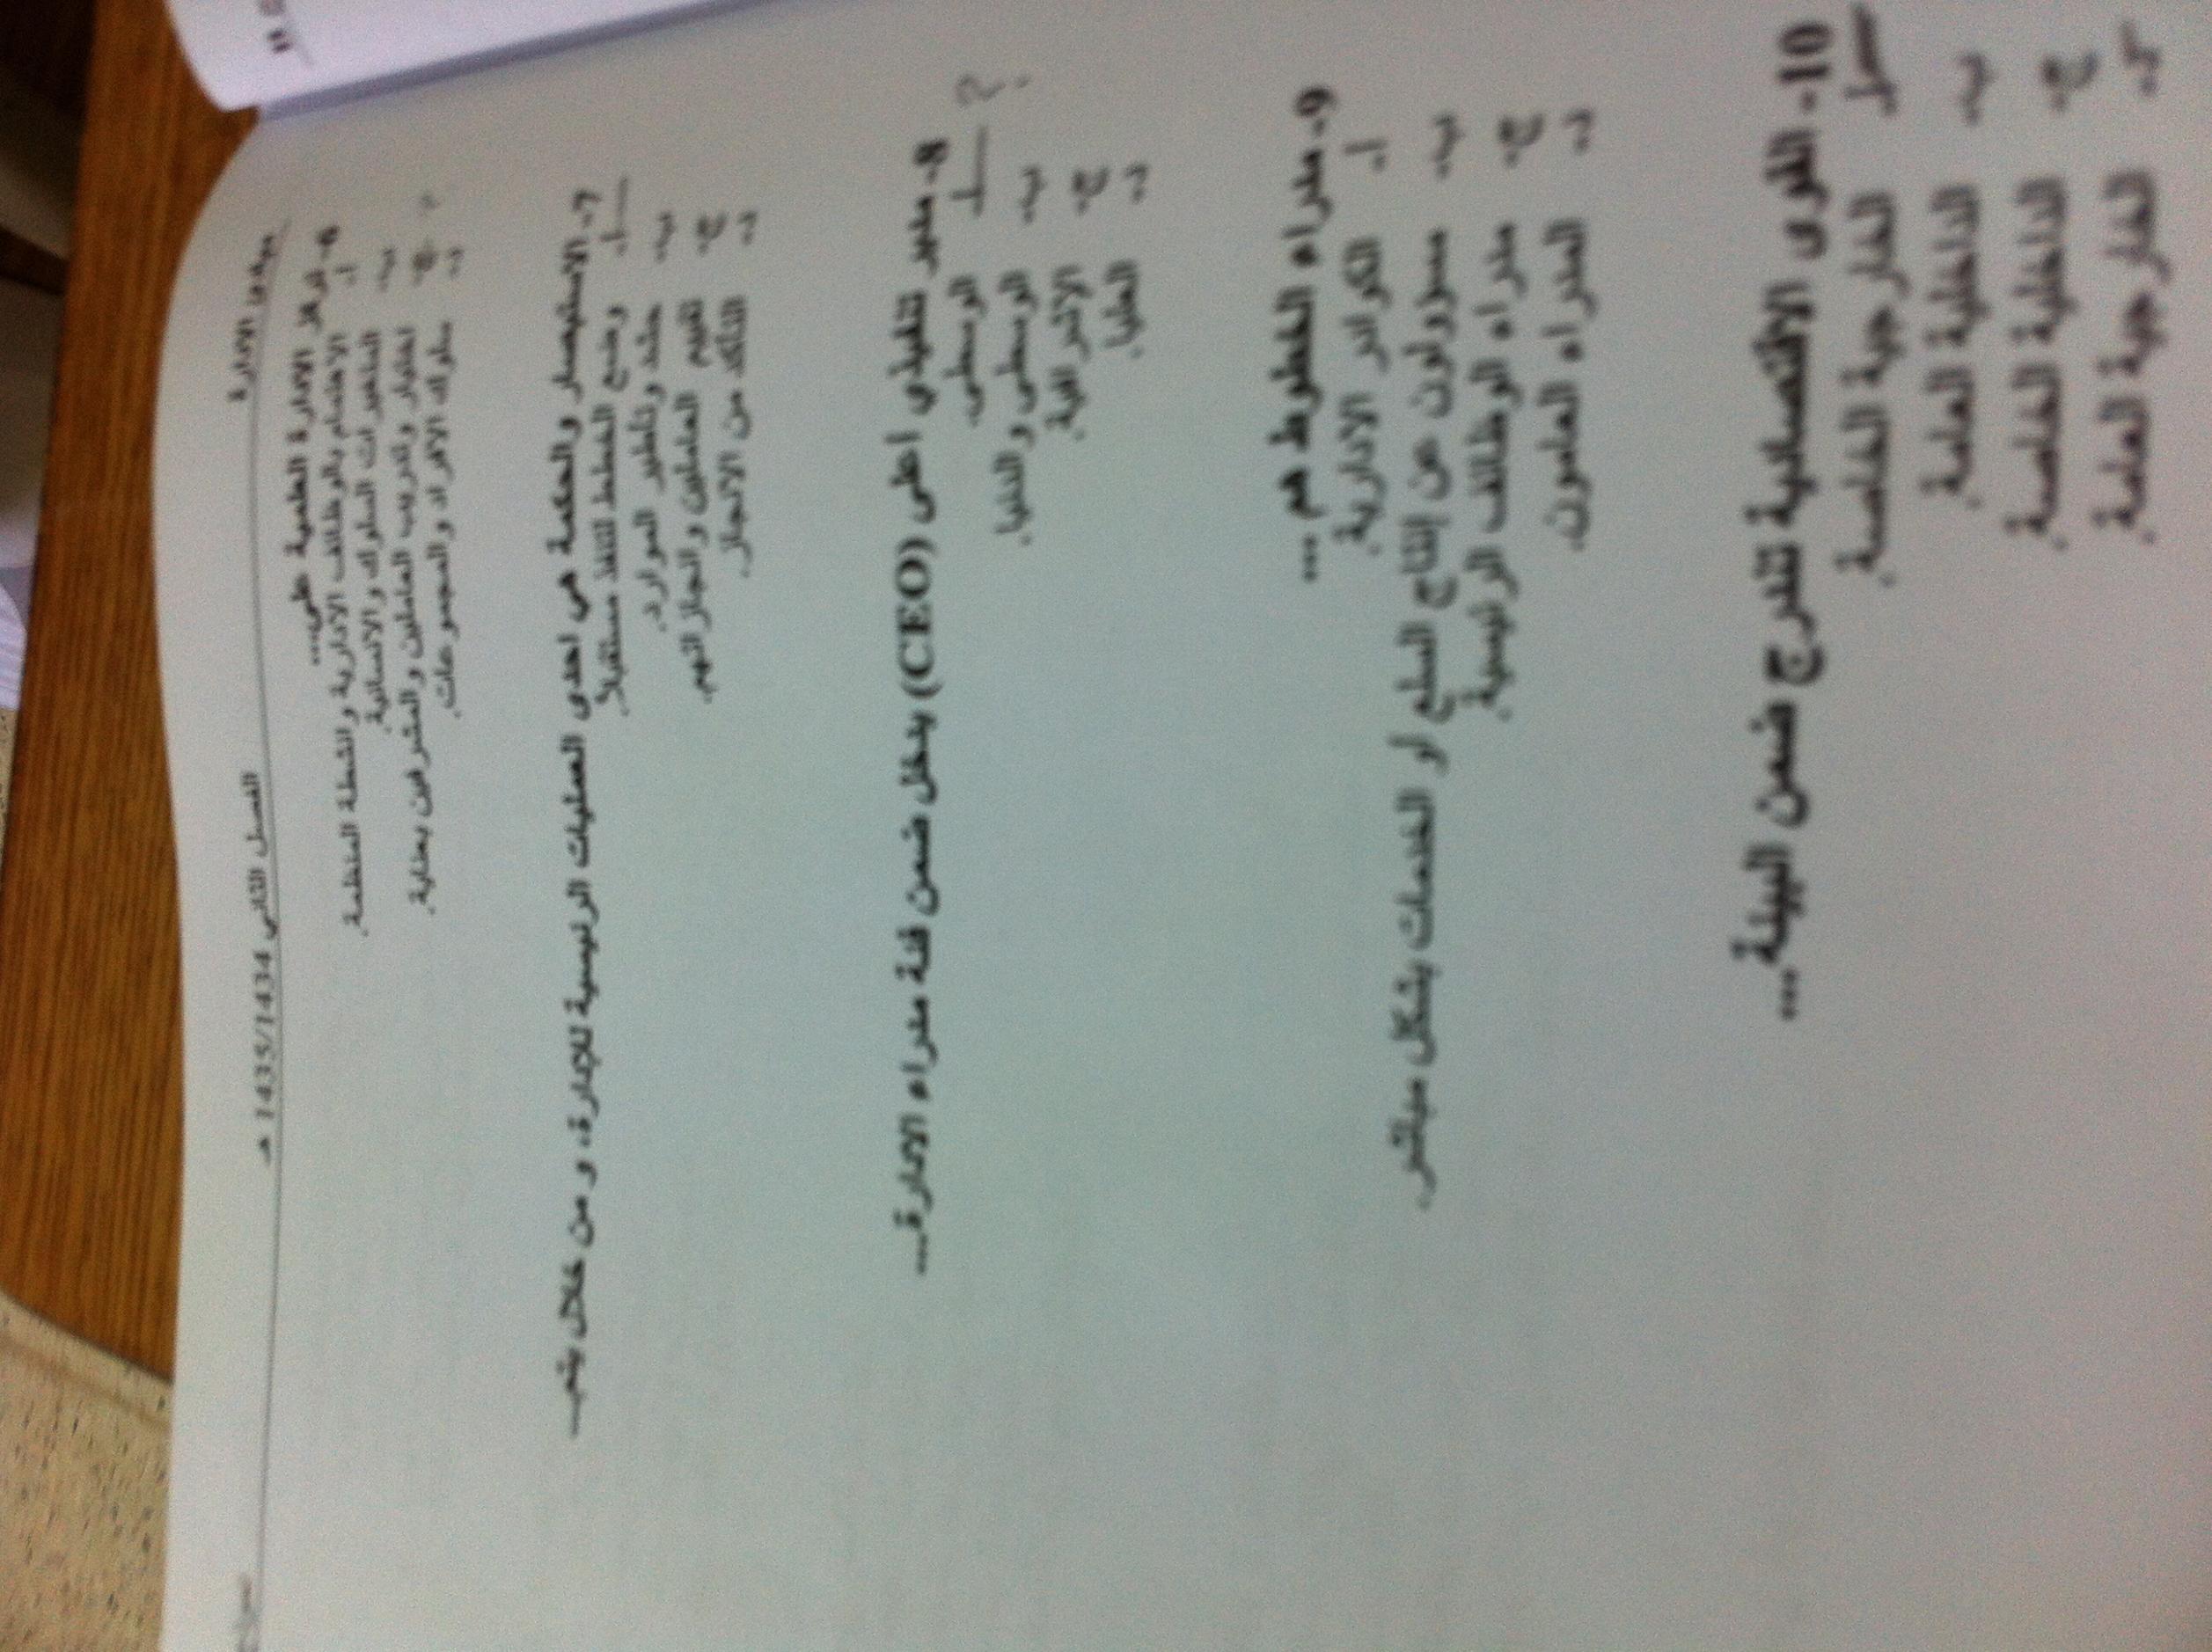 مبادئ الادارة
الفصل الثاني 1435/1434 هـ
6- تركز الادارة العلمية على....
أ- الاهتمام بالوظائف الادارية وانشطة المنظمة.
ب- المتغيرات السلوك والانسانية.
ج- اختيار وتدريب العاملين والمشرفين بعناية.
د- سلوك الافراد والمجموعات.
7- الاستبصار والحكمة هي احدى العمليات الرئيسية للإدارة، و من خلال يتم...
أ- وضع الخطط لتنفذ مستقبلاً.
ب- حشد وتطوير الموارد.
ج- تقييم العاملين وانجازاتهم.
د- التأكد من الانجاز.
8- مدير تنفيذي أعلى (CEO) يدخل ضمن فئة مدراء الادارة...
أ- الوسطى.
ب- الوسطى والدنيا.
ج- الاشرافية.
د- العليا.
9- مدراء الخطوط هم ...
أ- الكوادر الادارية.
ب- مسؤولون عن إنتاج السلع أو الخدمات بشكل مباشر.
ج- مدراء الوظائف الرئيسية.
د- المدراء العامون.
10- القوى الاقتصادية تندرج ضمن البيئة...
أ- الخارجية الخاصة.
ب- الداخلية العامة.
ج- الداخلية الخاصة.
د- الخارجية العامة.